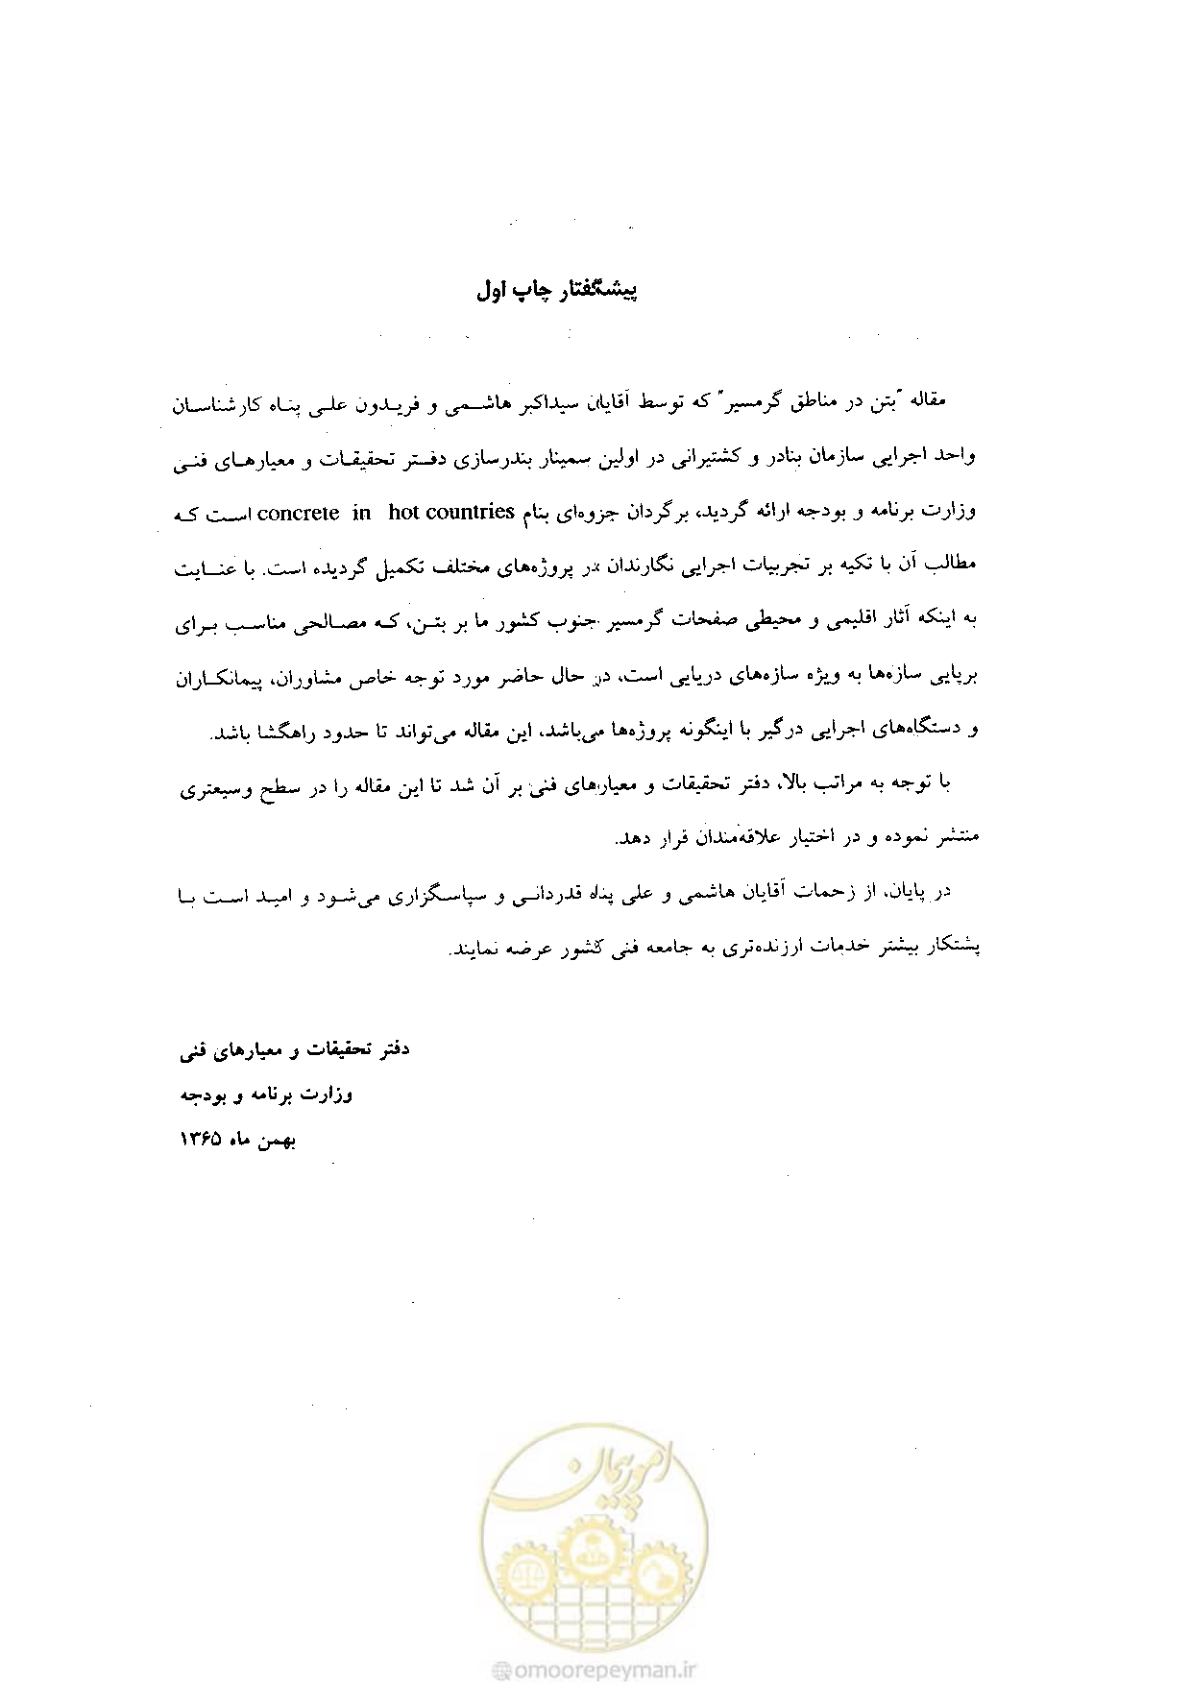 پیشگفتار چاپ اول
مقاله "بتن در مناطق گرمسیر" که توسط آقایان سیداکبر هاشمی و فریدون علی پناه کارشناسان
واحد اجرایی سازمان بنادر و کشتیرانی در اولین سمینار بندرسازی دفتر تحقیقات و معیارهای فنی
وزارت برنامه و بودجه ارائه گردید، برگردان جزوه‌ای بنام concrete in hot countries است که
مطالب آن با تکیه بر تجربیات اجرایی نگارندان در پروژه‌های مختلف تکمیل گردیده است. با عنایت
به اینکه آثار اقلیمی و محیطی صفحات گرمسیر جنوب کشور ما بر بتن، که مصالحی مناسب برای
برپایی سازه‌ها به ویژه سازه‌های دریایی است، در حال حاضر مورد توجه خاص مشاوران، پیمانکاران
و دستگاه‌های اجرایی درگیر با اینگونه پروژه‌ها می‌باشد، این مقاله می‌تواند تا حدود راهگشا باشد.
با توجه به مراتب بالا، دفتر تحقیقات و معیارهای فنی بر آن شد تا این مقاله را در سطح وسیعتری
منتشر نموده و در اختیار علاقه‌مندان قرار دهد.
در پایان، از زحمات آقایان هاشمی و علی پناه قدردانی و سپاسگزاری می‌شود و امید است با
پشتکار بیشتر خدمات ارزنده‌تری به جامعه فنی کشور عرضه نمایند.
دفتر تحقیقات و معیارهای فنی
وزارت برنامه و بودجه
بهمن ماه ۱۳۶۵
امور پیمان
@omoorepeyman.ir